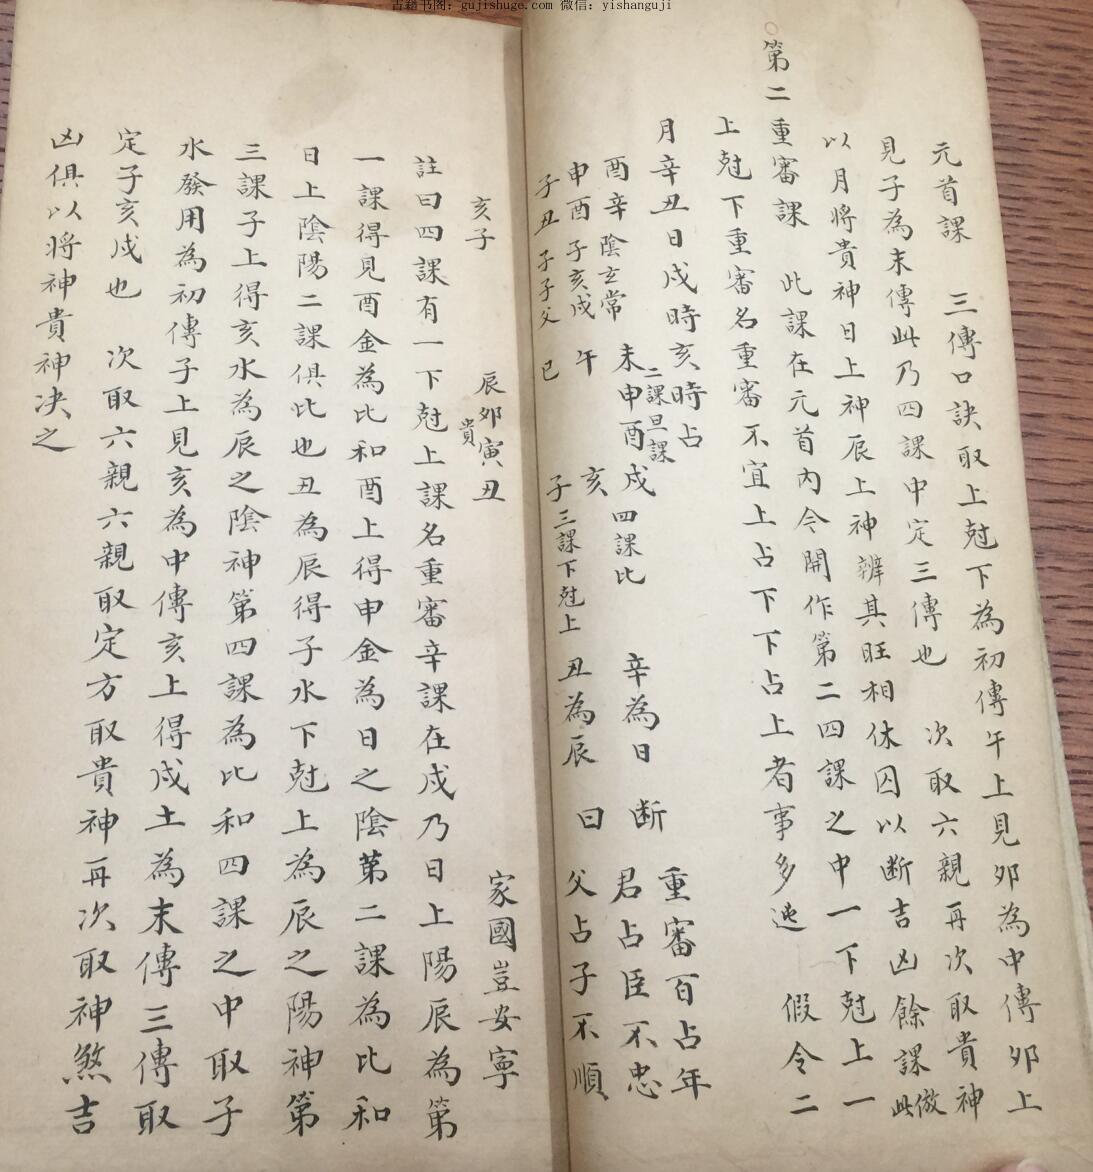 古籍书图：gujishuge.com 微信：yishanguji
元首課 三傳口訣取上尅下為初傳午上見夘為中傳夘上
見子為末傳此乃四課中定三傳也 次取六親再次取貴神
以月將貴神日上神辰上神辨其旺相休囚以断吉凶餘課倣此
第二重審課 此課在元首內今開作第二四課之中一下尅上一
上尅下重審名重審不宜上占下下占上者事多迍 假令二
月辛丑日戌時亥時占
二課旦課
酉辛陰玄常 未申酉戌 四課比 辛為日 断
重審百占年
君占臣不忠
申酉子亥戌 午 亥
子丑子子父 巳 子三課下尅上 丑為辰 曰 父占子不順
亥子 辰夘寅丑 家國豈安寧
貴
註曰四課有一下尅上課名重審辛課在戌乃日上陽辰為第
一課得見酉金為比和酉上得申金為日之陰第二課為比和
日上陰陽二課俱比也丑為辰得子水下尅上為辰之陽神第
三課子上得亥水為辰之陰神第四課為比和四課之中取子
水發用為初傳子上見亥為中傳亥上得戌土為末傳三傳取
定子亥戌也 次取六親六親取定方取貴神再次取神煞吉
凶俱以將神貴神决之